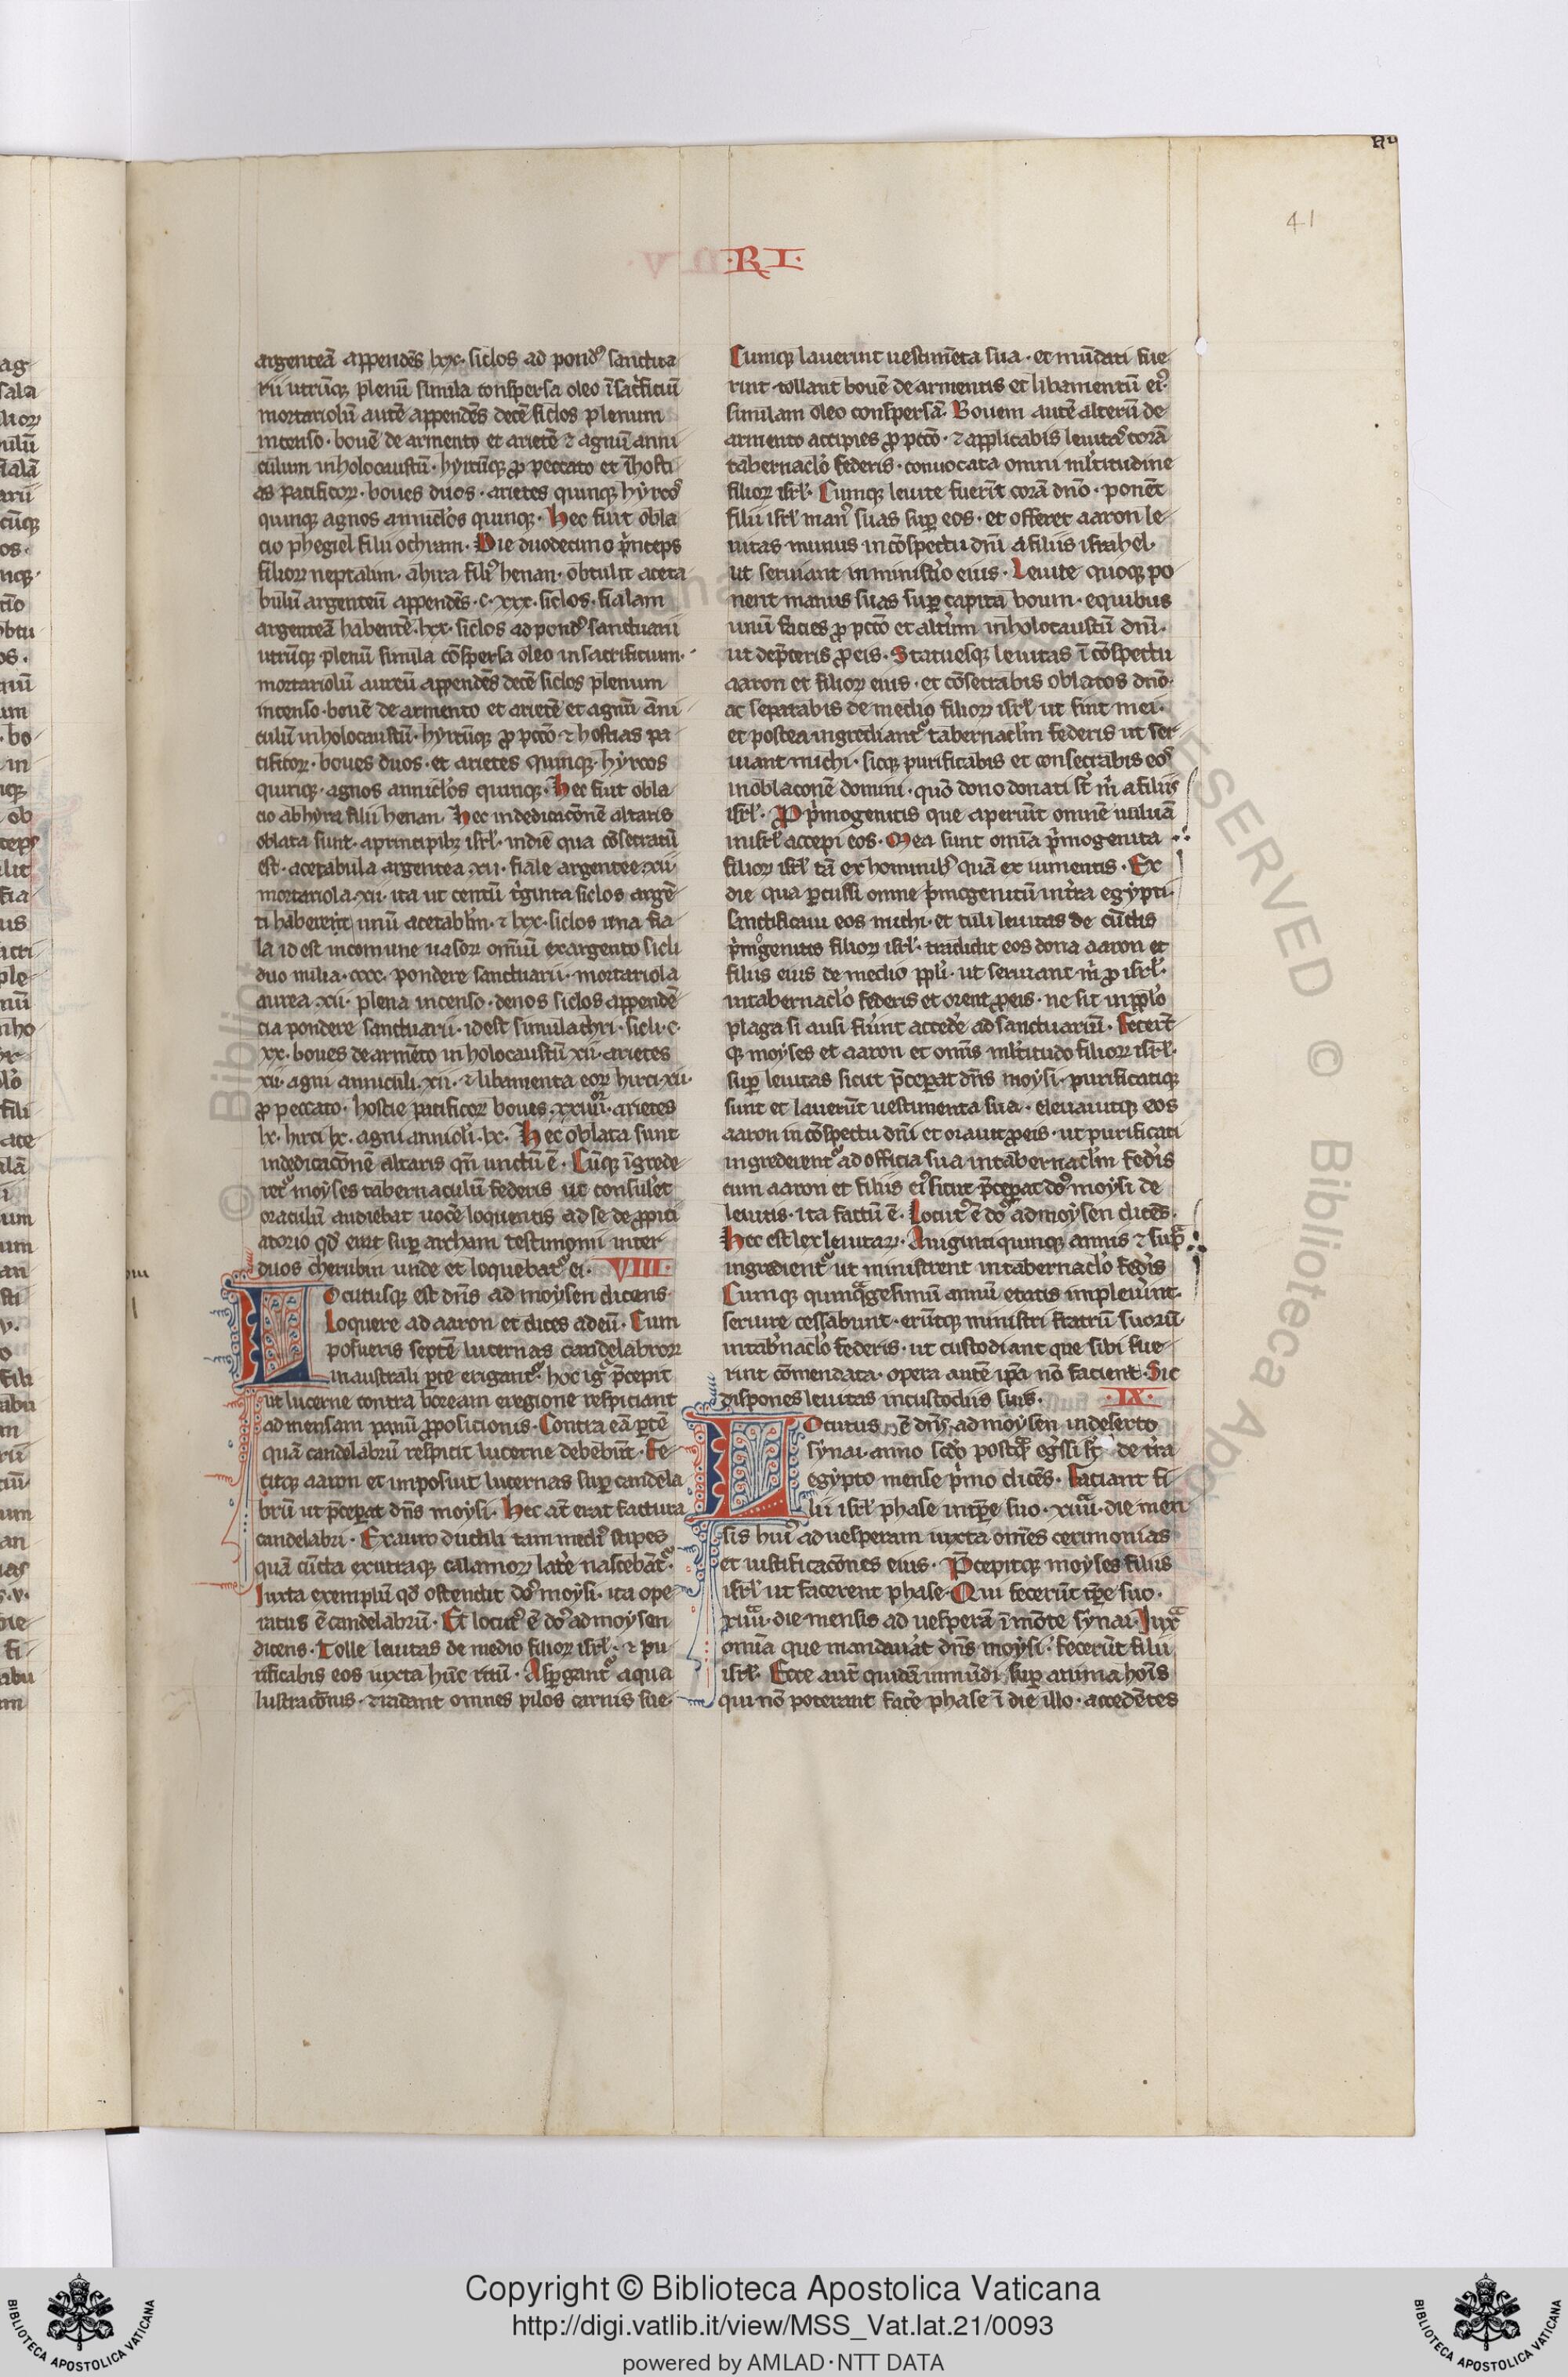 41
·RI·
argenteā appendēs lxx· siclos ad pondꝰ sanctua
rii utrūq; plenū simila conspersa oleo ī sac̄ficiū
mortariolū autē appendēs decē siclos plenum
incenso· bouē de armento et arietē ⁊ agnū anni
culum in holocaustū· hyrcūq; ꝓ peccato et ī hosti
as pacificoꝝ· boues duos· arietes quinq; hyrcos
quinq; agnos anniclos quinq;· Hec fuit obla
cio phegiel filii ochran· Die duodecimo p̄nceps
filioꝝ neptalim· ahira filiꝰ henan· obtulit aceta
bulū argenteū appendēs· c· xxx· siclos· fialam
argenteā habentē· lxx· siclos ad pondꝰ sanctuarii
utrūq; plenū simila cōspersa oleo in sacrificium·
mortariolū aureū appendēs decē siclos plenum
incenso· bouē de armento et arietē et agnū āni
culū in holocaustū· hyrcūq; ꝓ pctō· ⁊ hostias pa
cificoꝝ· boues duos· et arietes quinq;· hyrcos
quinq;· agnos anniclos quinq;· Hec fuit obla
cio ahhyra filii henan· Hec in dedicacōnē altaris
oblata sunt· a principibꝫ isrl̄· in diē qua cōsecratū
est· acetabula argentea xii· fiale argentee· xii·
mortariola· xii· ita ut centū t̄ginta siclos argē
ti haberent unū acetablm̄· ⁊ lxx· siclos una fia
la id est in comune uasoꝝ om̄iū ex argento sicli
duo milia· cccc· pondere sanctuarii· mortariola
aurea xii· plena incenso· denos siclos appendē
cia pondere sanctuarii· id est simul auri· sicli· c·
xx· boues de armēto in holocaustū xii· arietes
xii· agni anniculi· xii· ⁊ libamenta eoꝝ hirci· xii·
ꝓ peccato· hostie pacificoꝝ boues· xxiiii· arietes
lx· hirci lx· agni annicli· lx· Hec oblata sunt
in dedicacōnē altaris qn̄ unctū ē· Cūq; īgrede
ret᷑ moyses tabernaculū federis ut consulēt
oraculū audiebat uocē loquentis ad se de ꝓpici
atorio qd̄ erat suꝑ archam testimonii inter
duos cherubin unde et loquebat᷑ ei· VIII·
Locutusq; est dn̄s ad moysen dicens·
Loquere ad aaron et dices ad eū· Cum
posueris septē lucernas candelabrꝝ
in australi ꝑte erigant᷑· hoc ig᷑ p̄cepit
ut lucerne contra boream e regione respiciant
ad mensam panū ꝓposicionis· Contra eā ꝑtē
quā candelabrū respicit lucerne debebūt· Fe
citq; aaron et imposuit lucernas suꝑ candela
brū ut p̄ceꝑat dn̄s moysi· Hec aūt erat factura
candelabri· Ex auro ductili tam mediꝰ stipes
quā cūcta ex utraq; calamoꝝ laťe nascebāt᷑·
Iuxta exemplū qd̄ ostendit doꝰ moysi· ita ope
ratus ē candelabrū· Et locutꝰ ē doꝰ ad moysen
dicens· Tolle leuitas de medio filioꝝ isrl̄· ⁊ pu
rificabis eos iuxta hūc ritū· Aspergant᷑ aqua
lustracōnis· ⁊ radant omnes pilos carnis sue·
Cumq; lauerint uestimēta sua· et mūdati fue
rint· tollant bouē de armentis et libamentū eiꝰ·
similam oleo conspersā· Bouem autē alterū de
armento accipies ꝓ pctō· ⁊ applicabis leuitas corā
tabernaclo federis· conuocata omni ml̄titudine
filioꝝ isrl̄· Cumq; leuite fuerīt corā dn̄o· ponēt
filii isrl̄ manꝰ suas suꝑ eos· et offeret aaron le
uitas munus in cōspectu dn̄i a filiis israhel·
ut seruiant in ministīo eius· Leuite quoq; po
nent manus suas suꝑ capita boum· e quibus
unū facies ꝓ pctō et altīm in holocaustū dn̄i·
ut dep̄ceris ꝓ eis· Statuesq; leuitas ī cōspectu
aaron et filioꝝ eius· et cōsecrabis oblatos dn̄o·
ac separabis de medio filioꝝ isrl̄ ut sint mei·
et postea ingrediant᷑ tabernaclm̄ federis ut ser
uiant michi· sicq; purificabis et consecrabis eos
in oblaconē domini· quō dono donati sī m̄ a filiis
isrl̄· Pp̄mogenitis que aperiūt omnē uuluā
in isrl̄ accepi eos· Mea sunt omīa p̄mogenita
filioꝝ isrl̄ tā ex hominibꝰ quā ex iumentis· Ex
die qua ꝑcussi omne p̄mogenitū in t̄ra egypti·
sanctificaui eos michi· et tuli leuitas de cūctis
p̄mogenitis filioꝝ isrl̄· tradidit eos dona aaron et
filiis eius de medio ppl̄i· ut seruiant m̄ ꝓ isrl̄·
in tabernaclo federis et orent ꝓ eis· ne sit in ppl̄o
plaga si ausi fūint acceďe ad sanctuariū· Fecerūt
q; moyses et aaron et om̄is ml̄titudo filioꝝ isrl̄·
suꝑ leuitas sicut p̄ceꝑat dn̄s moysi· purificatiq;
sunt et lauerūt uestimenta sua· eleuauitq; eos
aaron in cōspectu dn̄i et orauit ꝓ eis· ut purificati
ingrederent᷑ ad officia sua in tabernaclm̄ fedīs
cum aaron et filiis eiꝰ sicut p̄ceꝑat doꝰ moysi de
leuitis· ita factū ē· Locutꝰ ē doꝰ ad moysen dicēs·
Hec est lex leuitaꝝ· A uiginti quinq; annis ⁊ supᷓ
ingredient᷑ ut ministrent in tabernaclo fedīs
Cumq; quinqᷓgesimū annū etatis impleuīnt·
seruire cessabunt· erūtq; ministri fratrū suorū·
in tab̄naclo federis· ut custodiant que sibi fue
rint cōmendata· opera autē ip̄a nō facient· Sic
dispones leuitas in custodiis suis· ·IX·
Locutus ē dn̄s ad moysen in deserto
synai· anno scd̄o postqᷓ eḡssi sī de t̄ra
egypto mense p̄mo dicēs· Faciant fi
lii isrl̄ phase in tp̄re suo· xiiii· die men
sis huiꝰ ad uesperam iuxta om̄es cerimonias
et iustificacōnes eius· P̄cepitq; moyses filiis
isrl̄ ut facerent phase· Qui fecerūt tp̄re suo·
xiiii· die mensis ad uesperā ī mōte synai· Iuxᷓ
omīa que mandauat dn̄s moysi· fecerūt filii
isrl̄· Ecce aūt quidā inmūdi suꝑ anima hoīs
qui nō poterant faceͤ phase ī die illo· accedētes
Copyright © Biblioteca Apostolica Vaticana
http://digi.vatlib.it/view/MSS_Vat.lat.21/0093
powered by AMLAD·NTT DATA
BIBLIOTECA APOSTOLICA VATICANA
BIBLIOTECA APOSTOLICA VATICANA